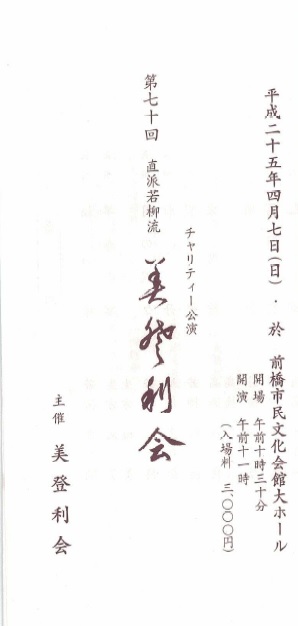 平成二十五年四月七日(日)・於 前橋市民文化会館大ホール
開場 午前十時三十分
開演 午前十一時
(入場料 三、〇〇〇円)
チャリティー公演
第七十回 直派若柳流 美登利会
主催 美登利会